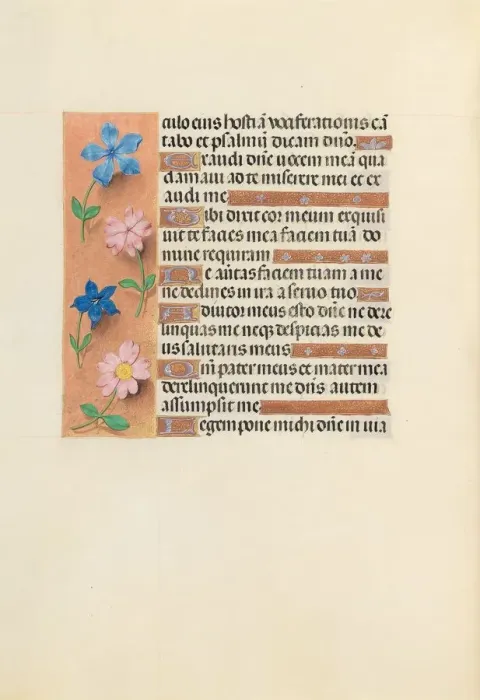 culo eius hostiā vociferationis cā
tabo et psalmū dicam dn̄o.
Exaudi dn̄e vocem meā qua
clamaui ad te miserere mei et ex
audi me
Tibi dixit cor meum exquisi
uit te facies mea faciem tuā do
mine requiram
Ne auertas faciem tuam a me
ne declines in ira a seruo tuo
Adiutor meus esto dn̄e ne dere
linquas me neqꝫ despicias me de
us salutaris meus
Qm̄ pater meus et mater mea
dereliquerunt me dn̄s autem
assumpsit me
Legem pone michi dn̄e in uia